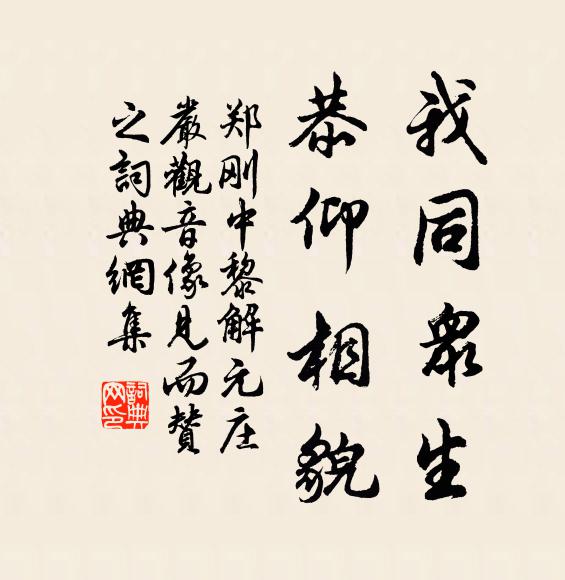 我同衆生
恭仰相貌
郑刚中黎解元庄
嚴觀音像見而賛
之詞典網集
詞典
网印